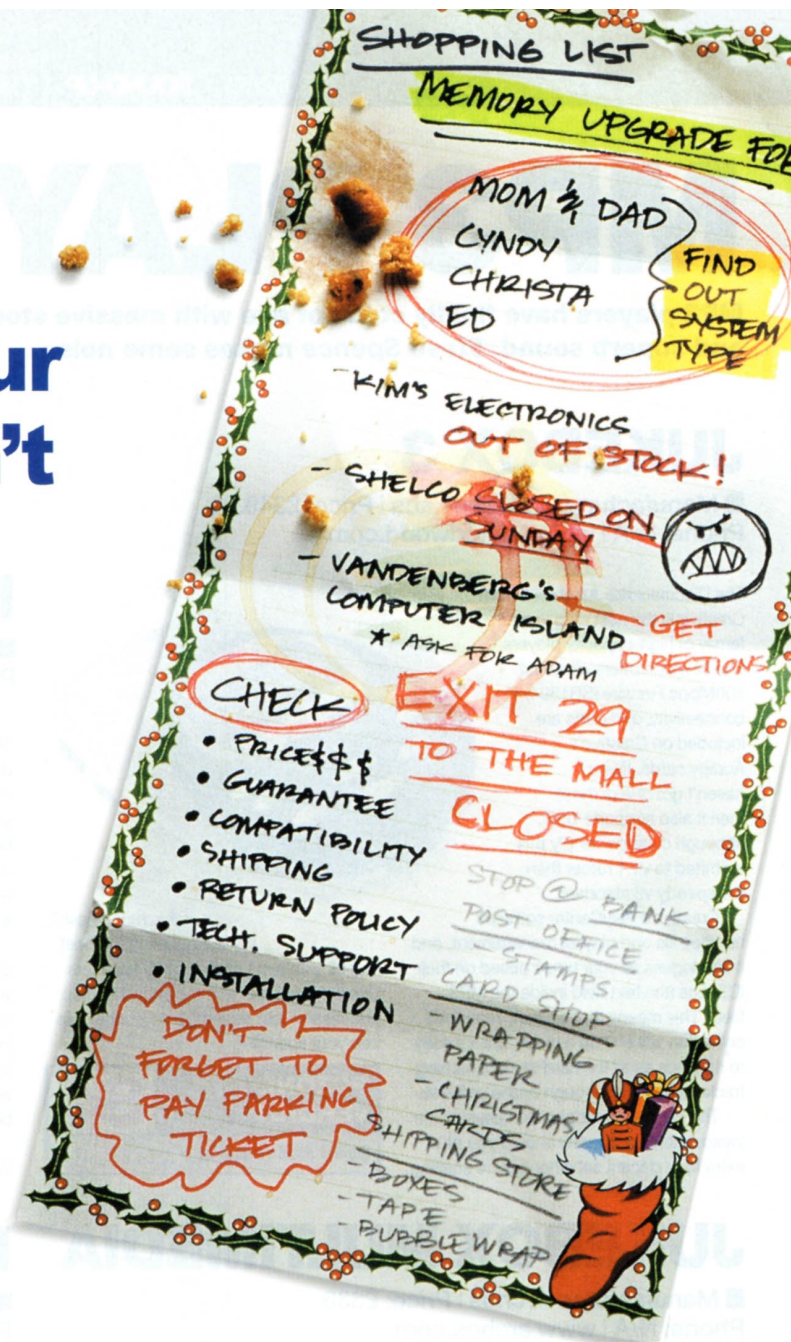 SHOPPING LIST
MEMORY UPGRADE FOR
MOM & DAD
CYNDY
CHRISTA
ED
FIND
OUT
SYSTEM
TYPE
-KIM'S ELECTRONICS
OUT OF STOCK!
- SHELCO CLOSED ON
SUNDAY
- VANDENBERG'S
COMPUTER ISLAND
★ ASK FOR ADAM
GET
DIRECTIONS
CHECK
• PRICE$$$
• GUARANTEE
• COMPATIBILITY
• SHIPPING
• RETURN POLICY
• TECH. SUPPORT
• INSTALLATION
EXIT 29
TO THE MALL
CLOSED
STOP @ BANK
POST OFFICE
- STAMPS
CARD SHOP
-WRAPPING
PAPER
-CHRISTMAS
CARDS
SHIPPING STORE
-BOXES
- TAPE
- BUBBLEWRAP
DON'T
FORGET TO
PAY PARKING
TICKET
ur
't